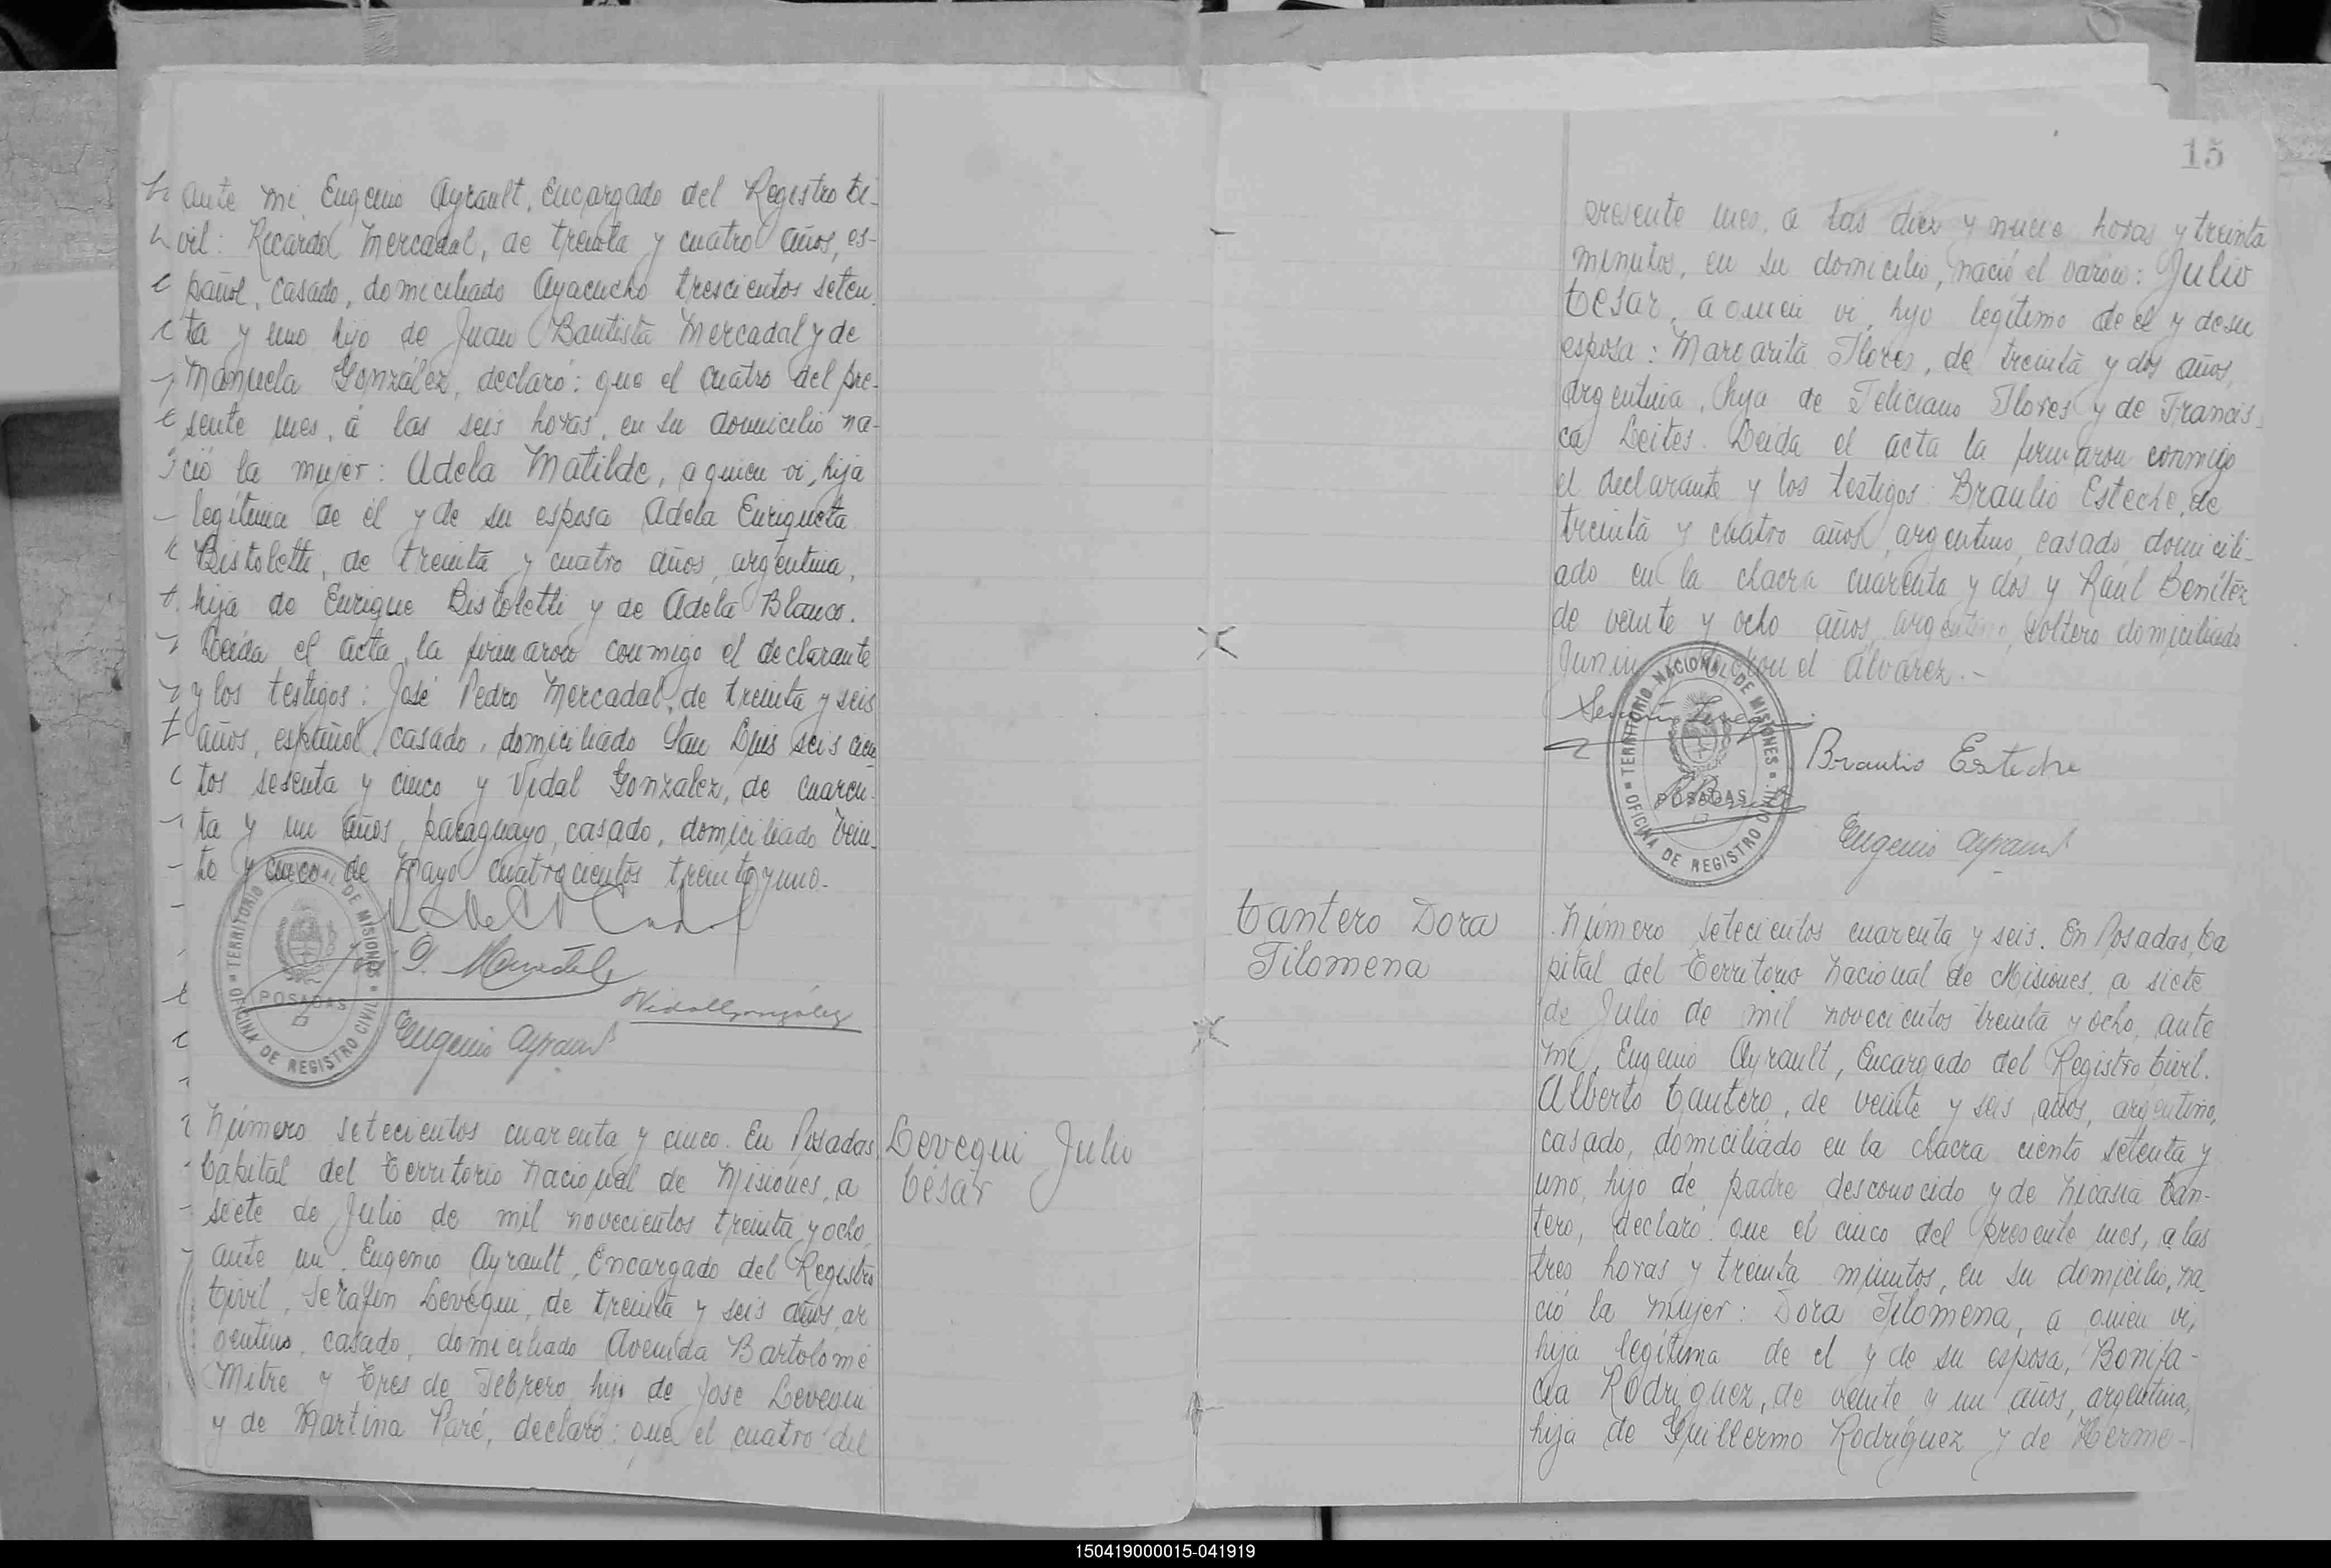 ante mi Eugenio Ayrault, Encargado del Registro Ci-
vil: Ricardo Mercadal, de treinta y cuatro años, es-
pañol, casado, domiciliado Ayacucho trescientos seten-
ta y uno hijo de Juan Bautista Mercadal y de
Manuela González, declaró: que el cuatro del pre-
sente mes, á las seis horas, en su domicilio na-
ció la mujer: Adela Matilde, a quien vi, hija
legítima de él y de su esposa Adela Enriqueta
Bistoletti, de treinta y cuatro años, argentina,
hija de Enrique Bistoletti y de Adela Blanco.
Leída el acta la firmaron conmigo el declarante
y los testigos: José Pedro Mercadal, de treinta y seis
años, español, casado, domiciliado San Luis seis cien
tos sesenta y cinco y Vidal Gonzalez, de cuaren-
ta y un años, paraguayo, casado, domiciliado Vein-
te y cinco de Mayo cuatrocientos treinta y uno.
TERRITORIO NACIONAL DE MISIONES
POSADAS
OFICINA DE REGISTRO CIVIL
Vidal González
Eugenio Ayrault
Número setecientos cuarenta y cinco. En Posadas,
Capital del Territorio Nacional de Misiones, a
siete de Julio de mil novecientos treinta y ocho,
ante mi, Eugenio Ayrault, Encargado del Registro
Civil, Serafín Levequi, de treinta y seis años, ar
gentino, casado, domiciliado Avenida Bartolomé
Mitre y Tres de Febrero, hijo de José Levequi
y de Martina Paré, declaró: que el cuatro del
Levequi Julio
César
15
presente mes, a las diez y nueve horas y treinta
minutos, en su domicilio, nació el varón: Julio
César, a quien vi, hijo legítimo de el y de su
esposa: Margarita Flores, de treinta y dos años,
argentina, hija de Feliciano Flores y de Francis-
ca Leites. Leida el acta la firmaron conmigo
el declarante y los testigos: Braulio Esteche, de
treinta y cuatro años, argentino, casado, domicili-
ado en la chacra cuarenta y dos y Raúl Benítez
de veinte y ocho años, argentino, soltero domiciliado
Junin y Alvarez.-
TERRITORIO NACIONAL DE MISIONES
POSADAS
OFICINA DE REGISTRO CIVIL
Braulio Esteche
Eugenio Ayrault
Cantero Dora
Filomena
Número setecientos cuarenta y seis. En Posadas, Ca
pital del Territorio Nacional de Misiones, a siete
de Julio de mil novecientos treinta y ocho, ante
mi, Eugenio Ayrault, Encargado del Registro Civil.
Alberto Cantero, de veinte y seis años, argentino,
casado, domiciliado en la chacra ciento setenta y
uno, hijo de padre desconocido y de Nicasia Can-
tero, declaró: que el cinco del presente mes, a las
tres horas y treinta minutos, en su domicilio, na-
ció la mujer: Dora Filomena, a quien vi,
hija legítima de el y de su esposa, Bonifa-
cia Rodriguez, de veinte y un años, argentina,
hija de Guillermo Rodríguez y de Herme-
150419000015-041919